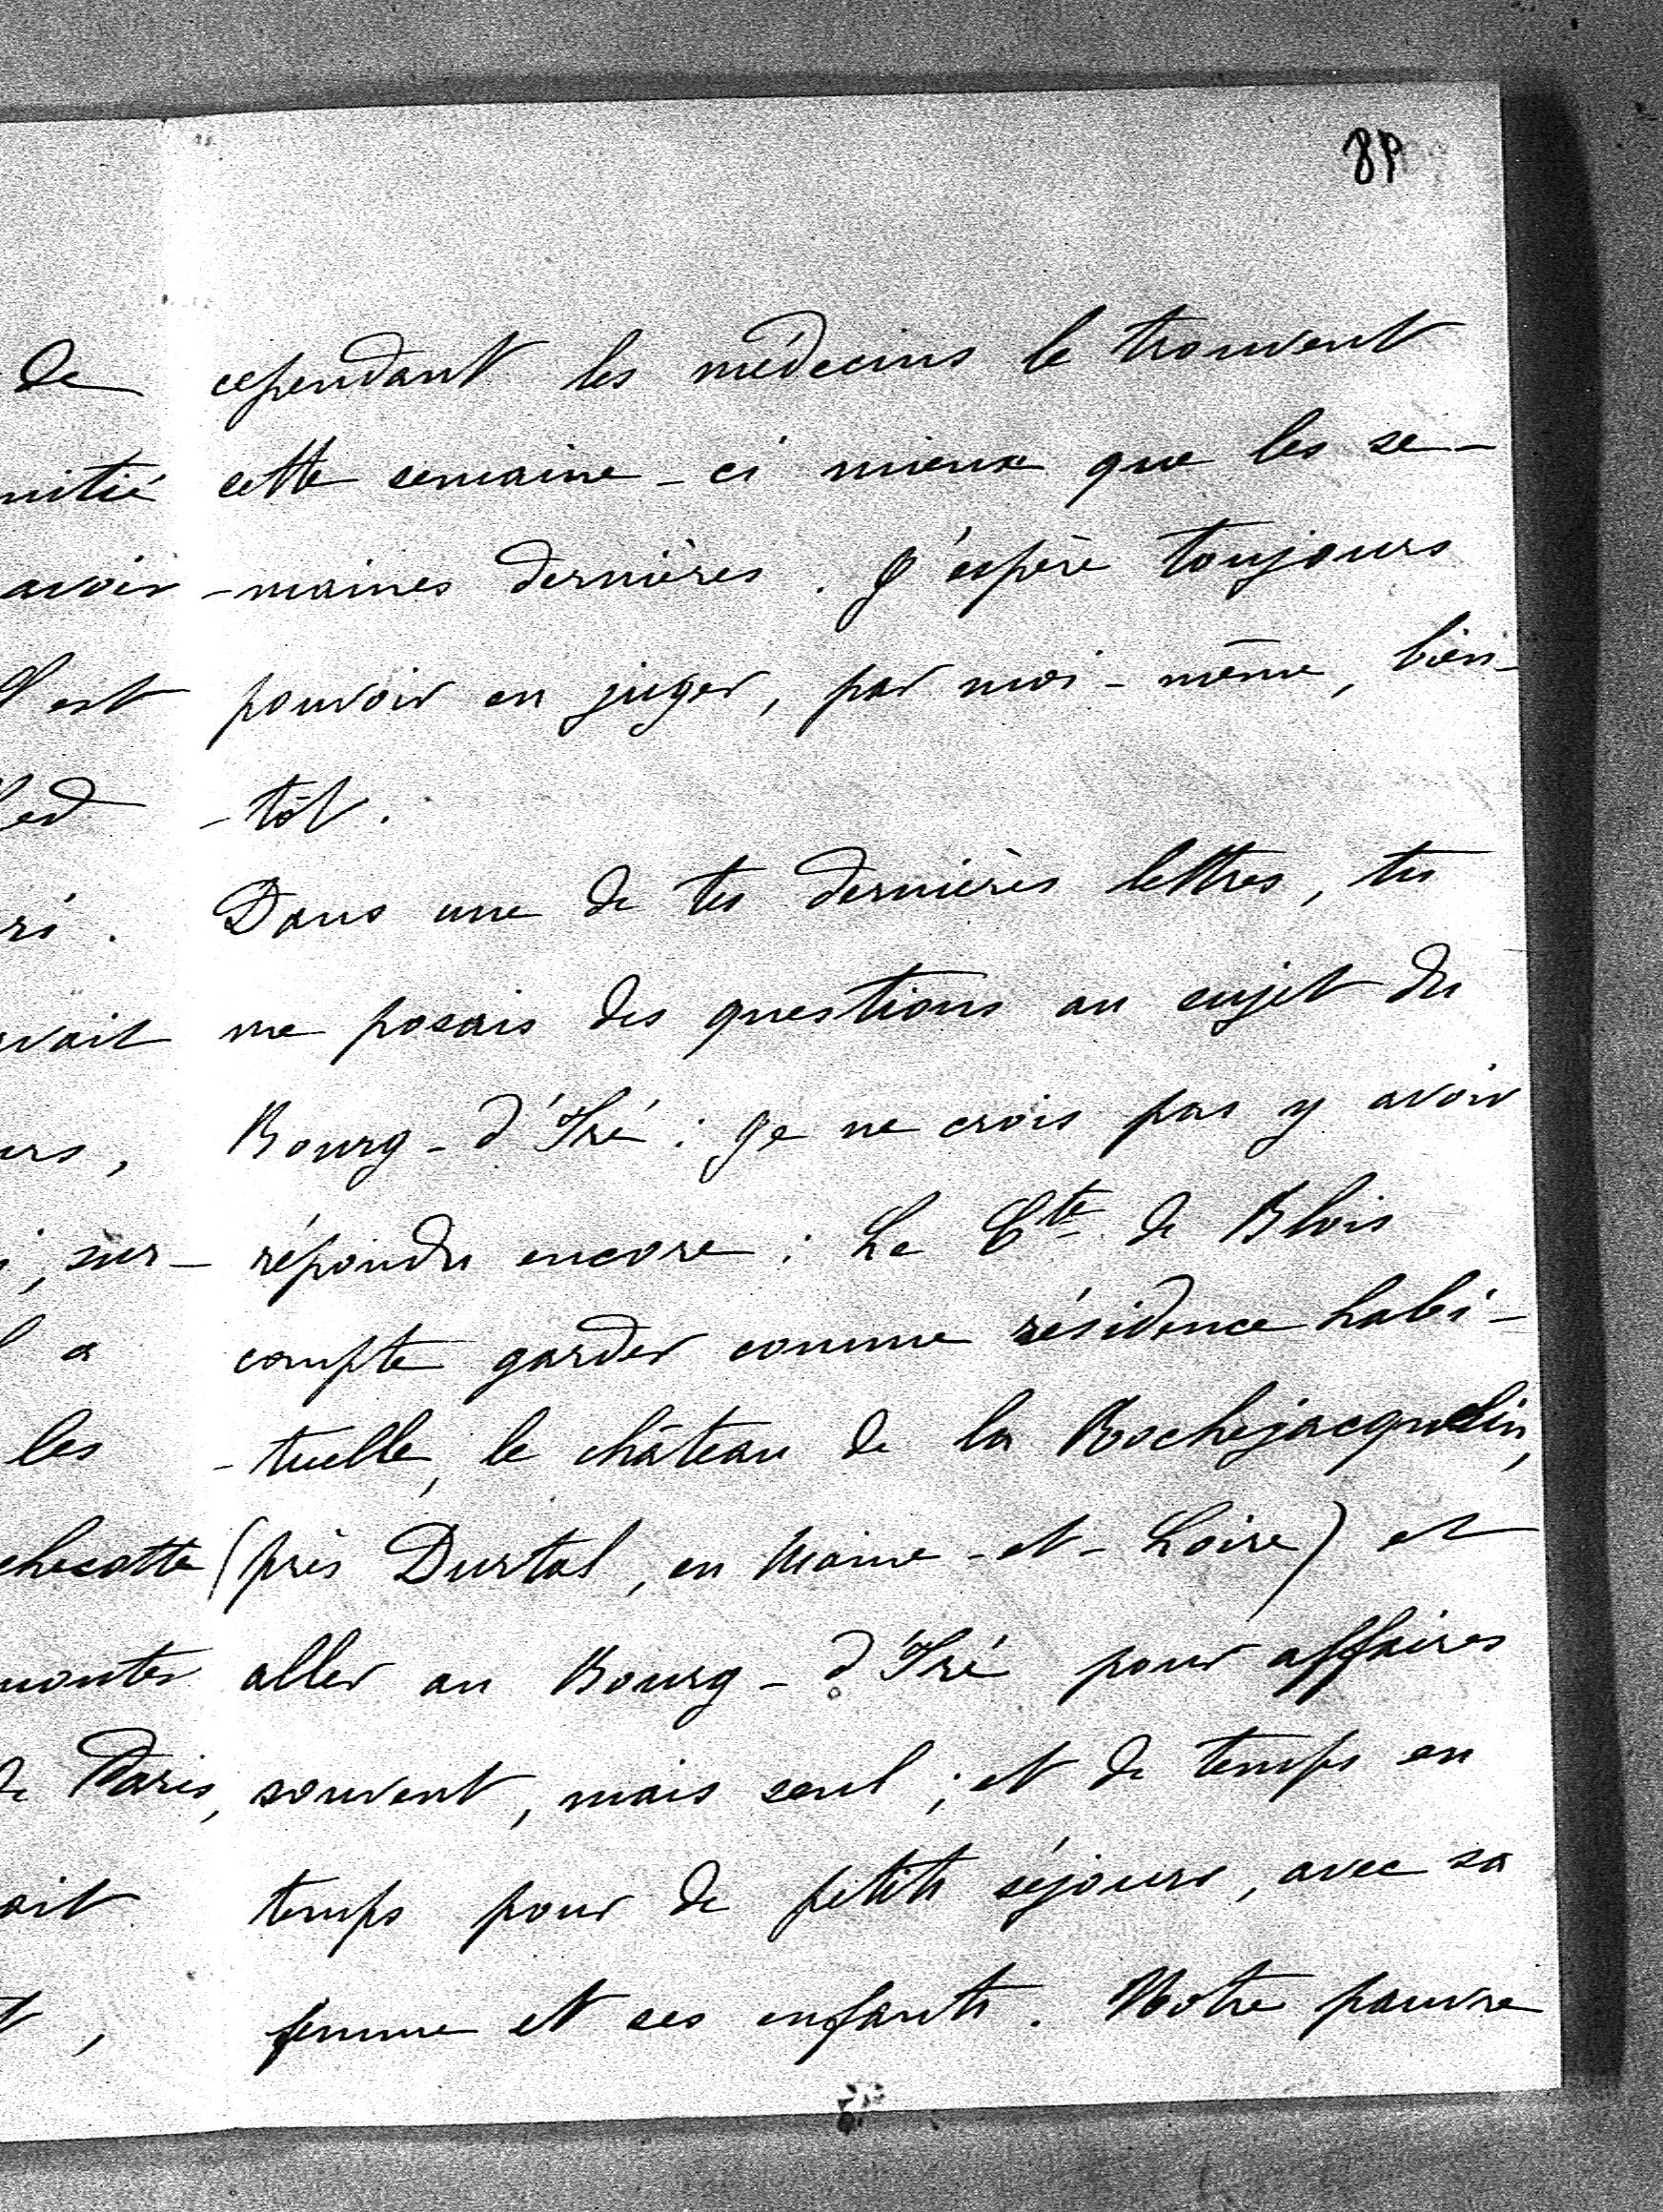 89
cependant les médecins le trouvent
cette semaine-ci mieux que les se-
-maines dernières. J'espère toujours
pouvoir en juger, par moi-même, bien-
-tôt.
Dans une de tes dernières lettres, tu
me posais des questions au sujet du
Bourg-d'Iré : je ne crois pas y avoir
répondu encore : Le Cte de Blois
compte garder comme résidence habi-
-tuelle, le château de la Rochejacquelin,
(près Durtal, en Maine-et-Loire) et
aller au Bourg-d'Iré pour affaires
souvent, mais seul ; et de temps en
temps pour de petits séjours, avec sa
femme et ses enfants. Notre pauvre
de
avoir
est
sur-
a
les
de Paris,